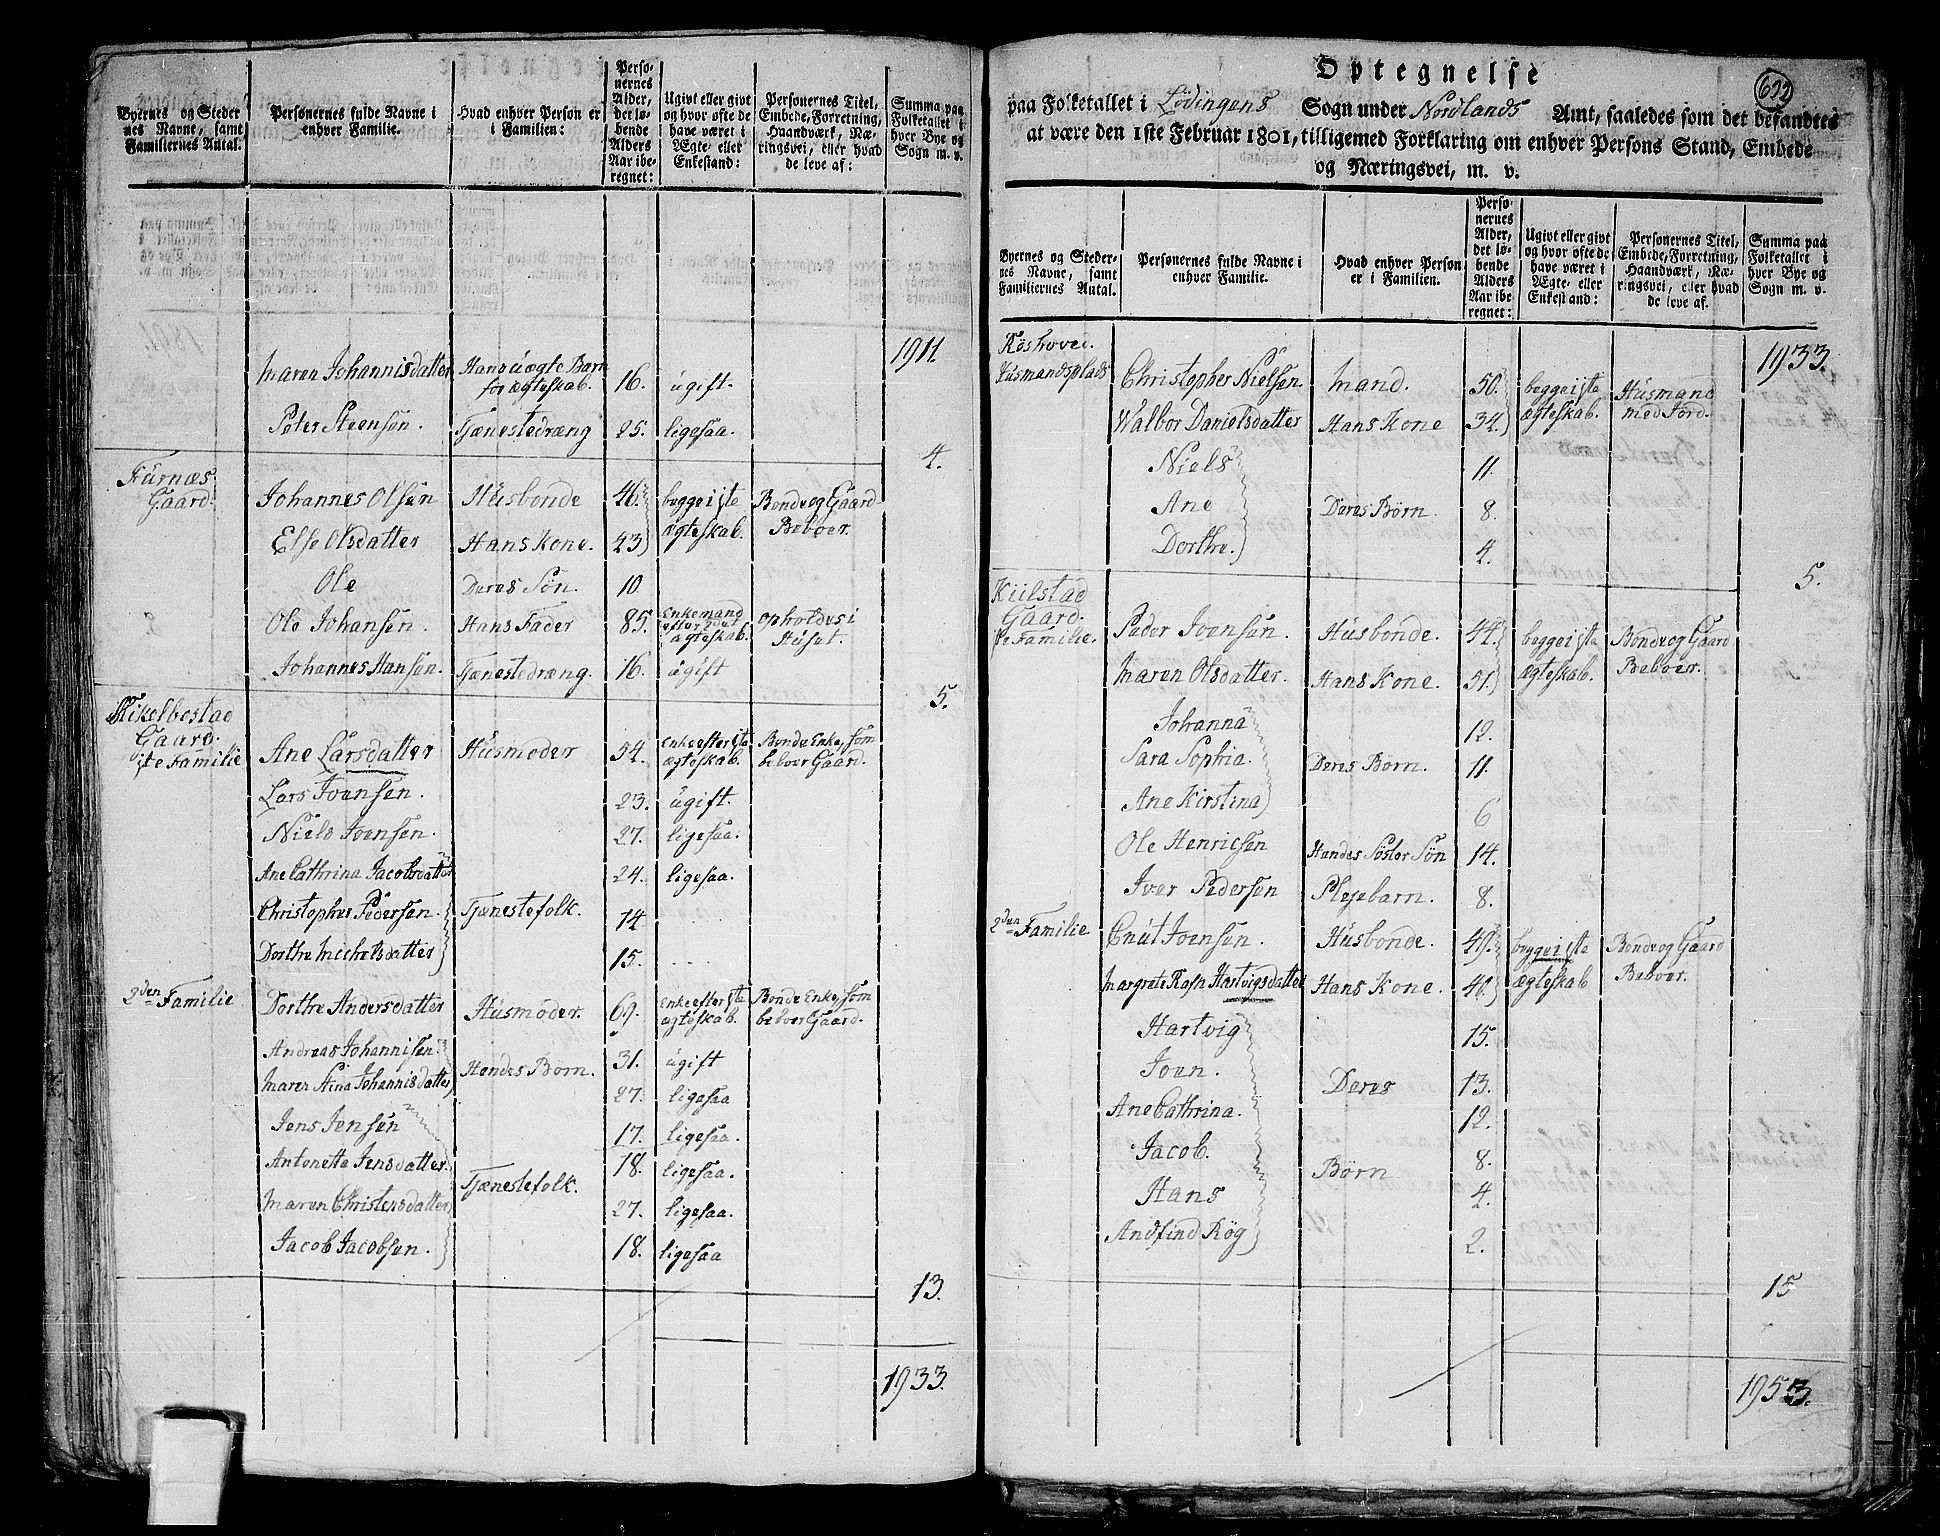 Byernes og Steder
nes Navne, samt
Familiernes Antal.
Personernes fulde Navne i
enhver Familie.
Hvad enhver Person er
i Familien:
Perso-
nernes
Alder,
det lø-
bende
Alders
Aar ibe-
regnet:
Ugivt eller givt
og hvor ofte de
have været i
Ægte- eller
Enkestand:
Personernes Titel,
Embede, Forretning,
Haandværk, Næ-
ringsvei, eller hvad
de leve af:
Summa paa
Folketallet i
hver Bye og
Sogn m. v.
1911.
Maren Johannisdatter Hans uægte Barn
for ægteskab. 16. ugift.
Peter Steensen. Tjænestedræng 25. ligesaa.
4.
Furnæs
Gaard.
Johannes Olsen Husbonde 46. begge i 1ste Bonde og Gaard
Else Olsdatter Hans Kone. 43) ægteskab. Beboer.
Ole Deres Søn. 10.
Ole Johansen. Hans Fader 85. Enkemand
efter 2det
ægteskab. opholdes i
Huset.
Johannes Hansen. Tjænestedræng. 16. ugift
5.
Kikelbostad
Gaard.
1ste Familie
Ane Larsdatter Husmoder 54. Enke efter 1ste Bonde Enke, som
ægteskab. beboer Gaard.
Lars Joensen. 23. ugift.
Niels Joensen. 27. ligesaa.
Ane Cathrina Jacobsdatter 24. ligesaa.
Christopher Pedersen. Tjænestefolk. 14.
Dorthe Michelsdatter) 15.
2den Familie
Dorthe Andersdatter Husmoder. 69. Enke efter 1ste Bonde Enke, som
ægteskab. beboer Gaard.
Andreas Johannisen. 31. ugift
Hendes Børn.
Maren Stina Johannisdatter) 27. ligesaa
Jens Jensen 17. ligesaa.
Antonetta Jensdatter 18. ligesaa.
Tjænestefolk.
Maren Christensdatter 27. ligesaa.
Jacob Jacobsen.) 18. ligesaa
13.
1933.
Optegnelse
633
paa Folketallet i Lødingens Sogn under Nordlands Amt, saaledes som det befandtes
at være den 1ste Februar 1801, tilligemed Forklaring om enhver Persons Stand, Embede
og Næringsvei, m. v.
Byernes og Steder-
nes Navne, samt
Familiernes Antal.
Personernes fulde Navne i
enhver Familie.
Hvad enhver Person
er i Familien.
Perso-
nernes
Alder,
det lø-
bende
Alders
Aar ibe-
regnet:
Ugivt eller givt
og hvor ofte de
have været i
Ægte- eller
Enkestand:
Personernes Titel,
Embede, Forretning,
Haandværk, Næ-
ringsvei, eller hvad
de leve af.
Summa paa
Folketallet i
hver Bye og
Sogn m. v.
1933.
Røshoved.
Husmandsplads
Christopher Nielsen. Mand. 50. begge i 1ste Husmand
Walbor Danielsdatter Hans Kone 34.) ægteskab. med Jord.
Niels 11.
Ane Deres Børn 8.
Dorthe.) 4.
5.
Kiilstad
Gaard.
1ste Familie.
Peder Joensen. Husbonde. 44. begge i 1ste Bonde og Gaard
Maren Olsdatter. Hans Kone. 51.) ægteskab. Beboer.
Johanna 12.
Sara Sophia. Deres Børn. 11.
Ane Kirstina) 6
Ole Henricsen Hendes Søster Søn 14.
Iver Pedersen Plejebarn. 8.
2den Familie
Cnut Joensen. Husbonde. 49. begge i 1ste Bonde og Gaard
Margrete Rash Hartvigsdatter Hans Kone. 40.) ægteskab Beboer.
Hartvig 15.
Joen. Deres 13.
Ane Cathrina. 12.
Jacob. 8.
Børn
Hans 4.
Andfind Røg 2.
15
1953.